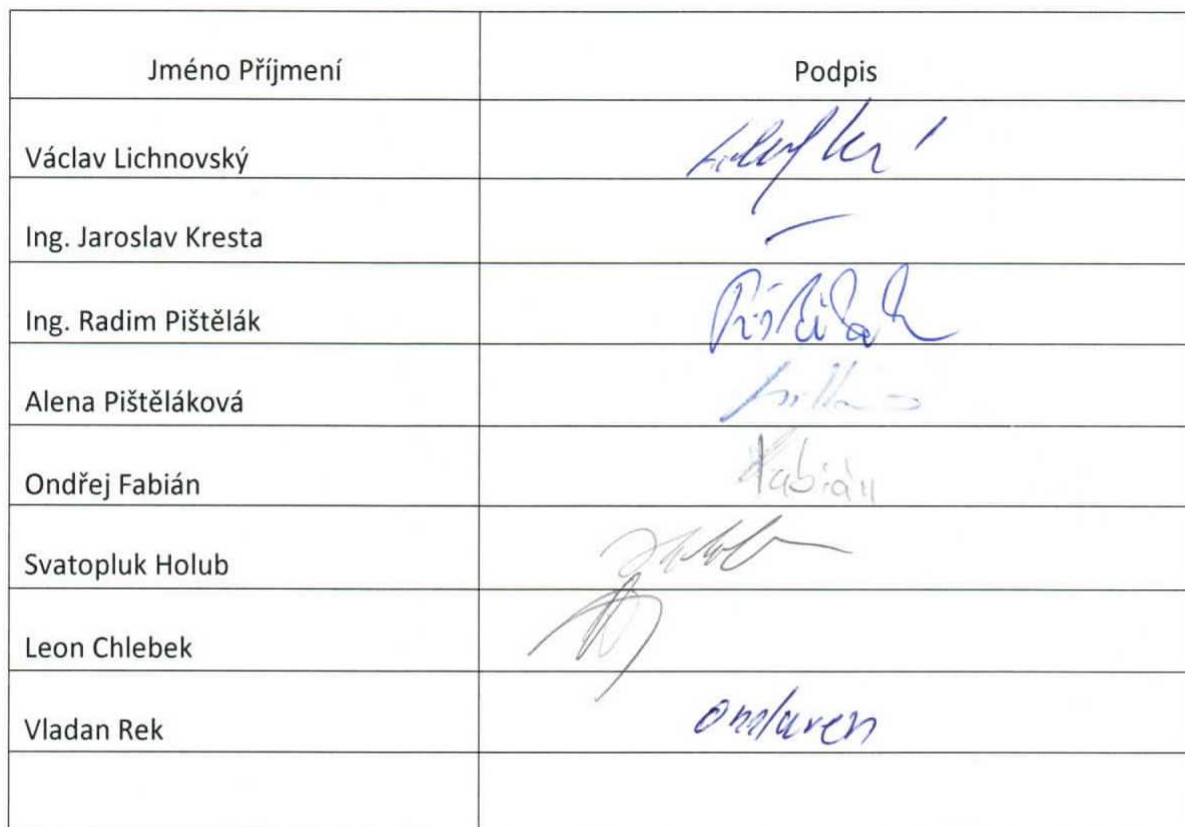 Jméno Příjmení Podpis
Václav Lichnovský
Ing. Jaroslav Kresta –
Ing. Radim Pištělák Pištělák
Alena Pištěláková
Ondřej Fabián Fabián
Svatopluk Holub
Leon Chlebek
Vladan Rek omluven